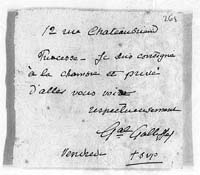 263
12 rue Chateaubriand
Princesse - Je suis consigné
à la chambre et privé
d'aller vous voir
respectueusement
Gal Galliffet
Vendredi